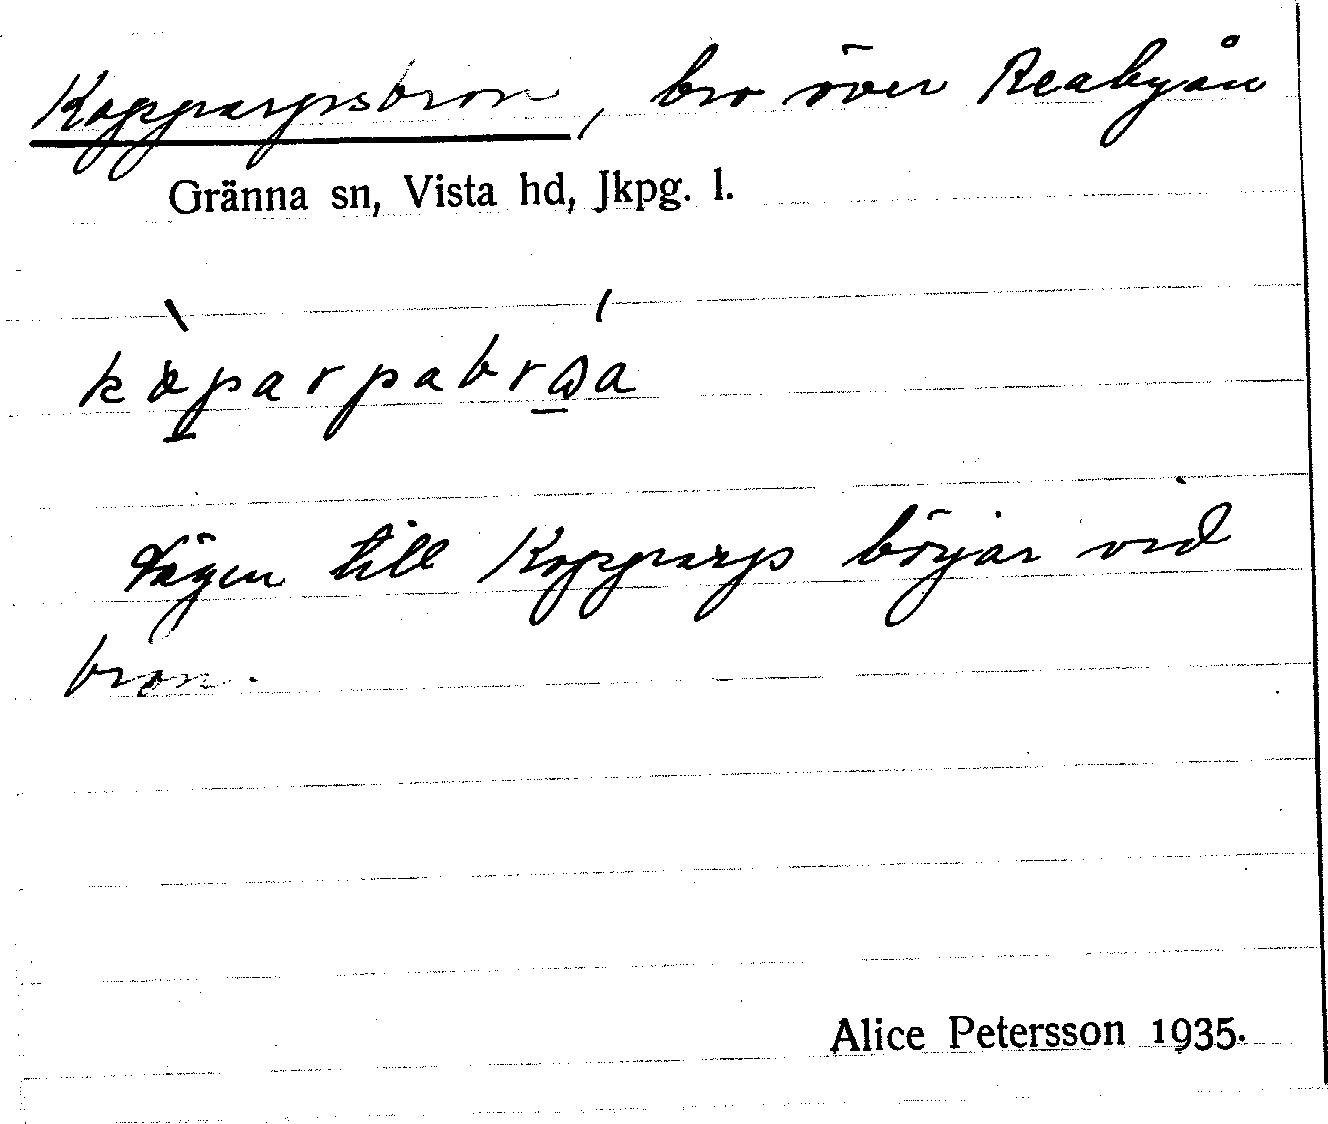 Kopparpsbron, bro över Reabyån
Gränna sn, Vista hd, Jkpg. l.
Vägen till Kopparps börjar vid
bron.
Alice Petersson 1935.